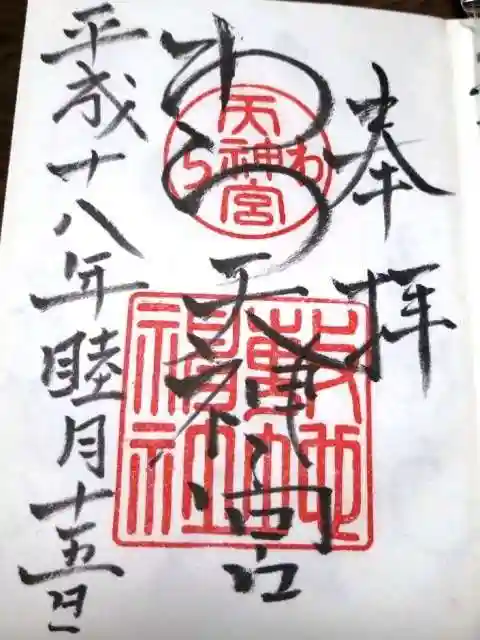 奉拝
わら天神宮
平成十八年睦月十五日
わら天神宮
敷地神社